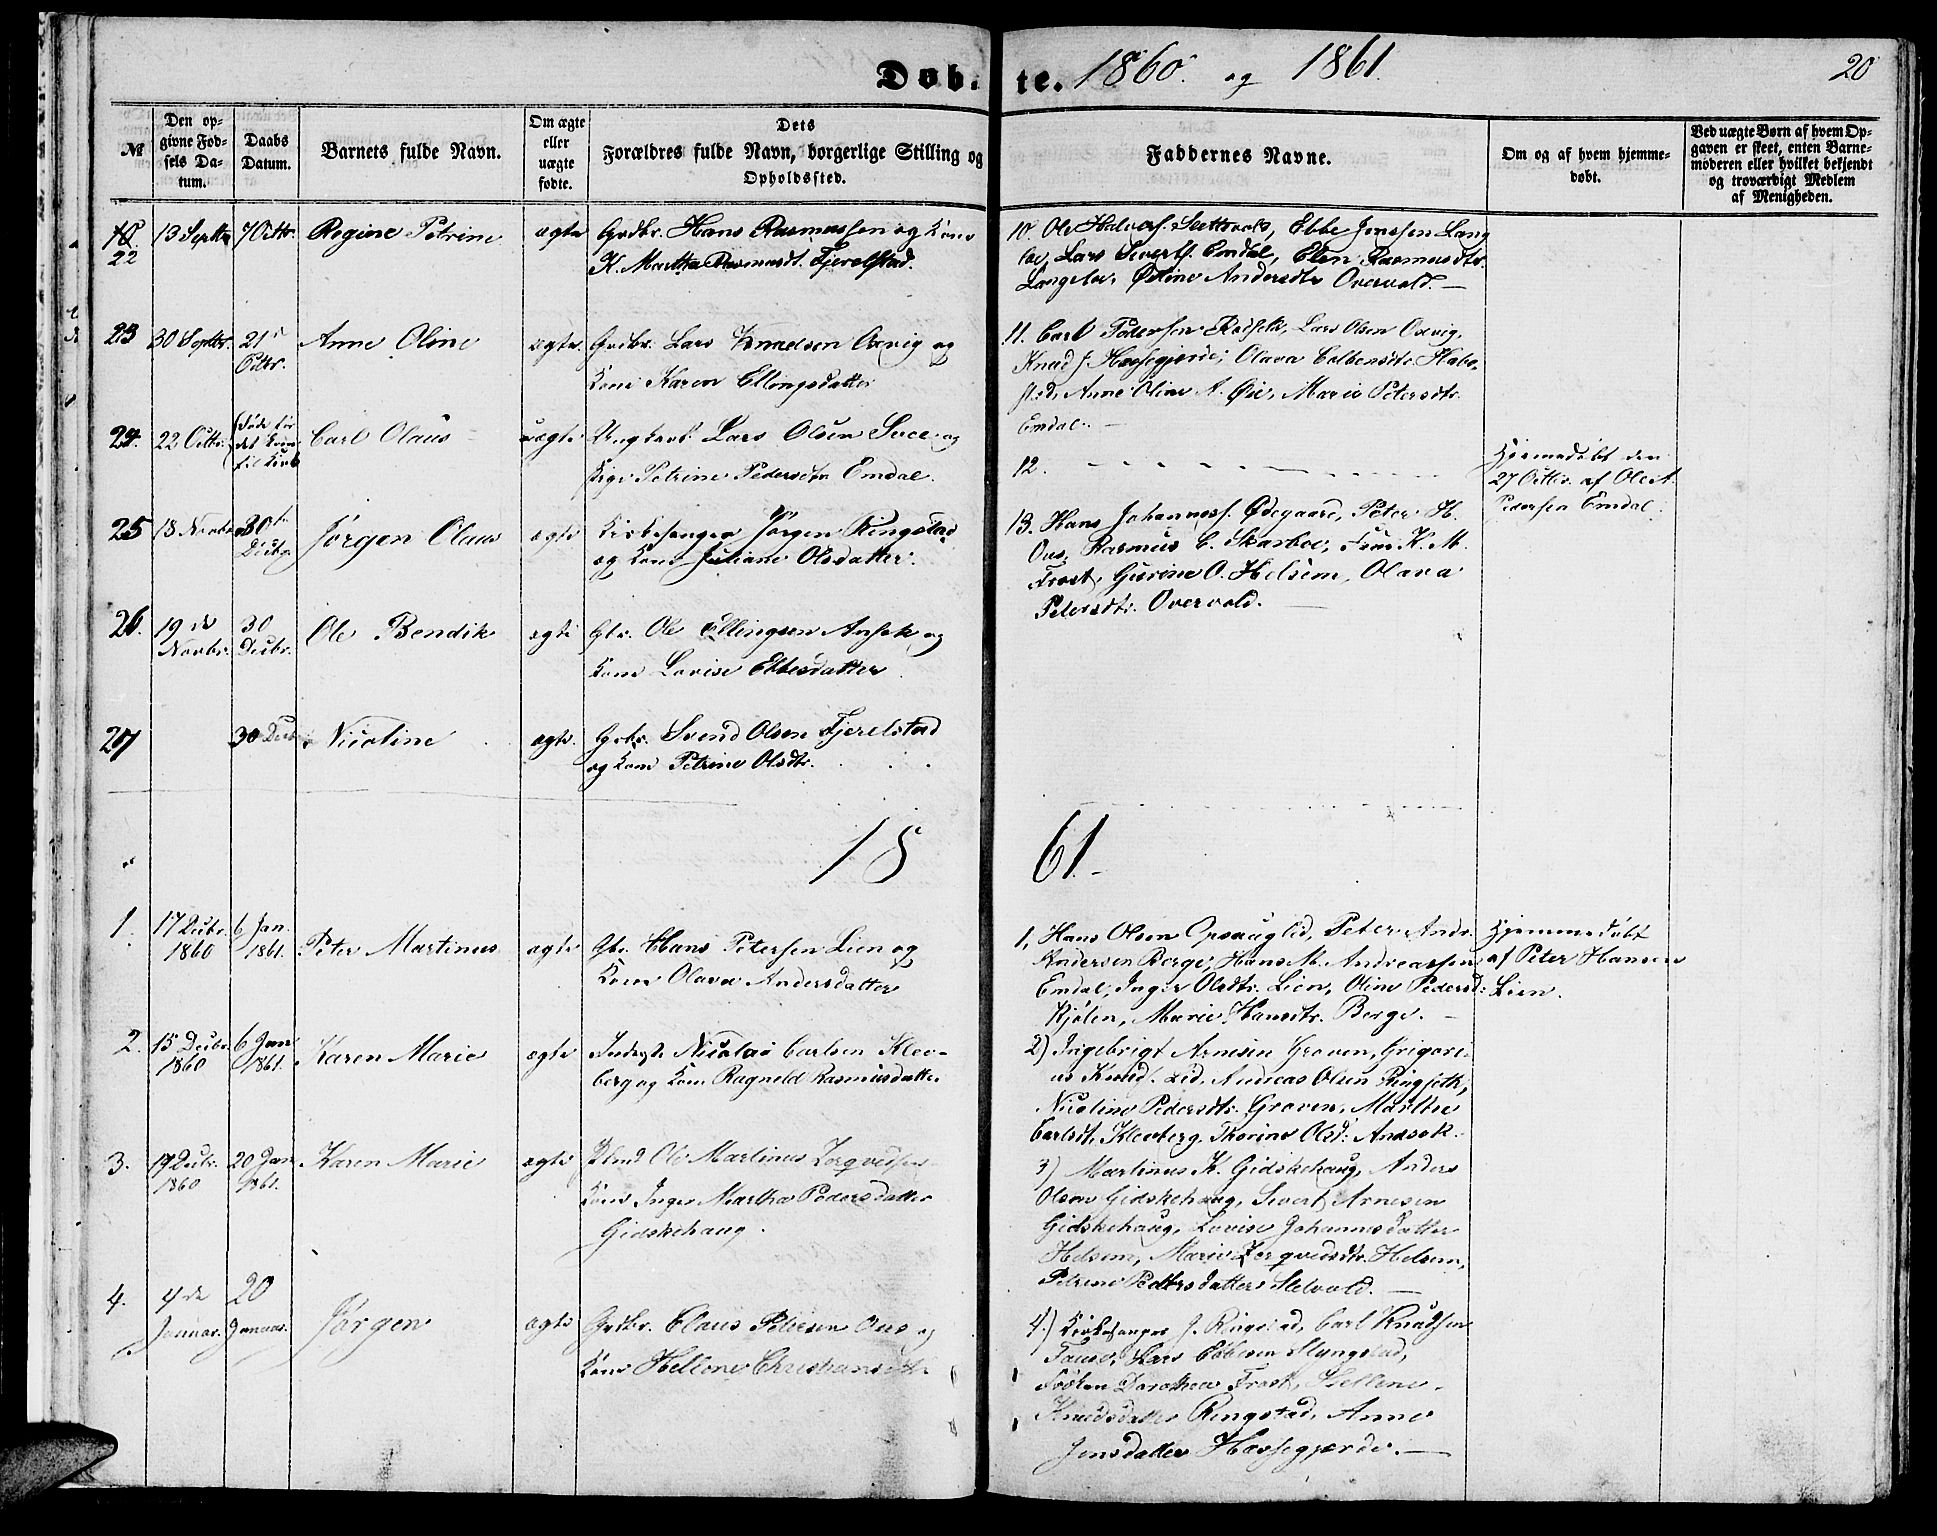 Døbte. 1860. og 1861. 20
№
Den opgivne Fødsels Datum.
Daabs Datum.
Barnets fulde Navn.
Om ægte eller uægte fødte.
Dets Forældres fulde Navn, borgerlige Stilling og Opholdssted.
Faddernes Navne.
Om og af hvem hjemmedøbt.
Ved uægte Børn af hvem Opgaven er skeet, enten Barnemoderen eller hvilket bekjendt og troværdigt Medlem af Menigheden.
22 13 Septbr 7 Octbr. Regine Petrine ægte Grdbr. Hans Rasmussen og Kone
K. Martha Rasmusdt. Fjerelstad.
10. Ole Halvors. Ebbe Jenssen Lang
loe, Lars Siverts. Emdal, Elen Rasmusdtr.
Langeloe, Østine Andersdtr Overvold. —
23 30 Septbr. 21 Octbr. Anne Oline ægte. Grdbr. Lars Knudsen Oxvig og
Kone Karen Ellingsdatter
11. Carl Pedersen Lars Olsen Oxvig,
Knud J. Hæssegjerde, Olava
Anne Oline A. Øie, Marie Petersdtr.
Emdal. —
24. 22 Octbr. (Døde før det kom til Kirke Carl Olaus uægte Ungkarl Lars Olsen og
Pige Petrine Pedersdtr Emdal.
12.
Hjemmedøbt den
27 Octbr. af Ole A.
Pedersen Emdal.
25 18 Novbr 30te Decbr. Jørgen Olaus ægte Kirkesanger Jørgen Ringstad
og Kone Juliane Olsdatter.
13. Hans Johanness. Ødegaard, Peter H.
Ous, Rasmus C. Skarboe, Frue K. M.
Frost, Gurine O. Helsem, Olava
Petersdtr. Overvold. —
26. 19de Novbr. 30 Decbr. Ole Bendik ægte Gbr. Ole Ellingsen Ansok og
Kone Lovise Ebbesdatter
27 30 Decbr Nicoline ægte. Grbr. Svend Olsen Fjerelstad
og Kone Petrine Olsdtr.
18 61. —
1. 17 Decbr. 1860 6 Jan. 1861. Peter Martinus ægte Gbr. Hans Petersen Lien og
Kone Olava Andersdatter
1, Hans Olsen Opsauglid, Peter Andr.
Andersen Berge, Hans M. Andreassen
Emdal, Inger Olsdtr. Lien, Oline Pedersd:
Kjølen, Marie Hansdtr. Berge. —
Hjemmedøbt
af Peter Hansen
Lien.
2. 15 Decbr. 1860 6 Jan 1861. Karen Marie ægte Inderst Nicolai Carlsen Klev-
berg og Kone Ragneld Rasmusdatter
2) Ingebrigt Arnesen Groven, Grigori-
us Knud. Lid, Andreas Olsen Ringseth,
Nicoline Pedersdtr. Groven, Marthe
Carlsdt. Klevberg, Thorine Olsd: Ansok.
3. 17 Decbr. 1860 20 Jan 1861. Karen Marie ægte Ole Martinus
Kone Inger Martha Pedersdatter
Gidskehaug.
3) Martinus K. Gidskehaug, Anders
Olsen Gidskehaug, Sivert Arnesen
Gidskehaug, Lovise Johannsdatter
Helsem, Marie Helsem,
Petrine Pedersdatter —
4. 4de Januar. 20 Januar. Jørgen ægte Grdbr. Claus Petersen Ous og
Kone Hellene Christiansdtr.
4.) Kirkesanger J. Ringstad, Carl Knudsen
Lars Ebbesen Slyngstad,
Frøken Dorothea Frost, Hellene
Knudsdatter Ringstad, Anne
Jensdatter Hæssegjerde. —